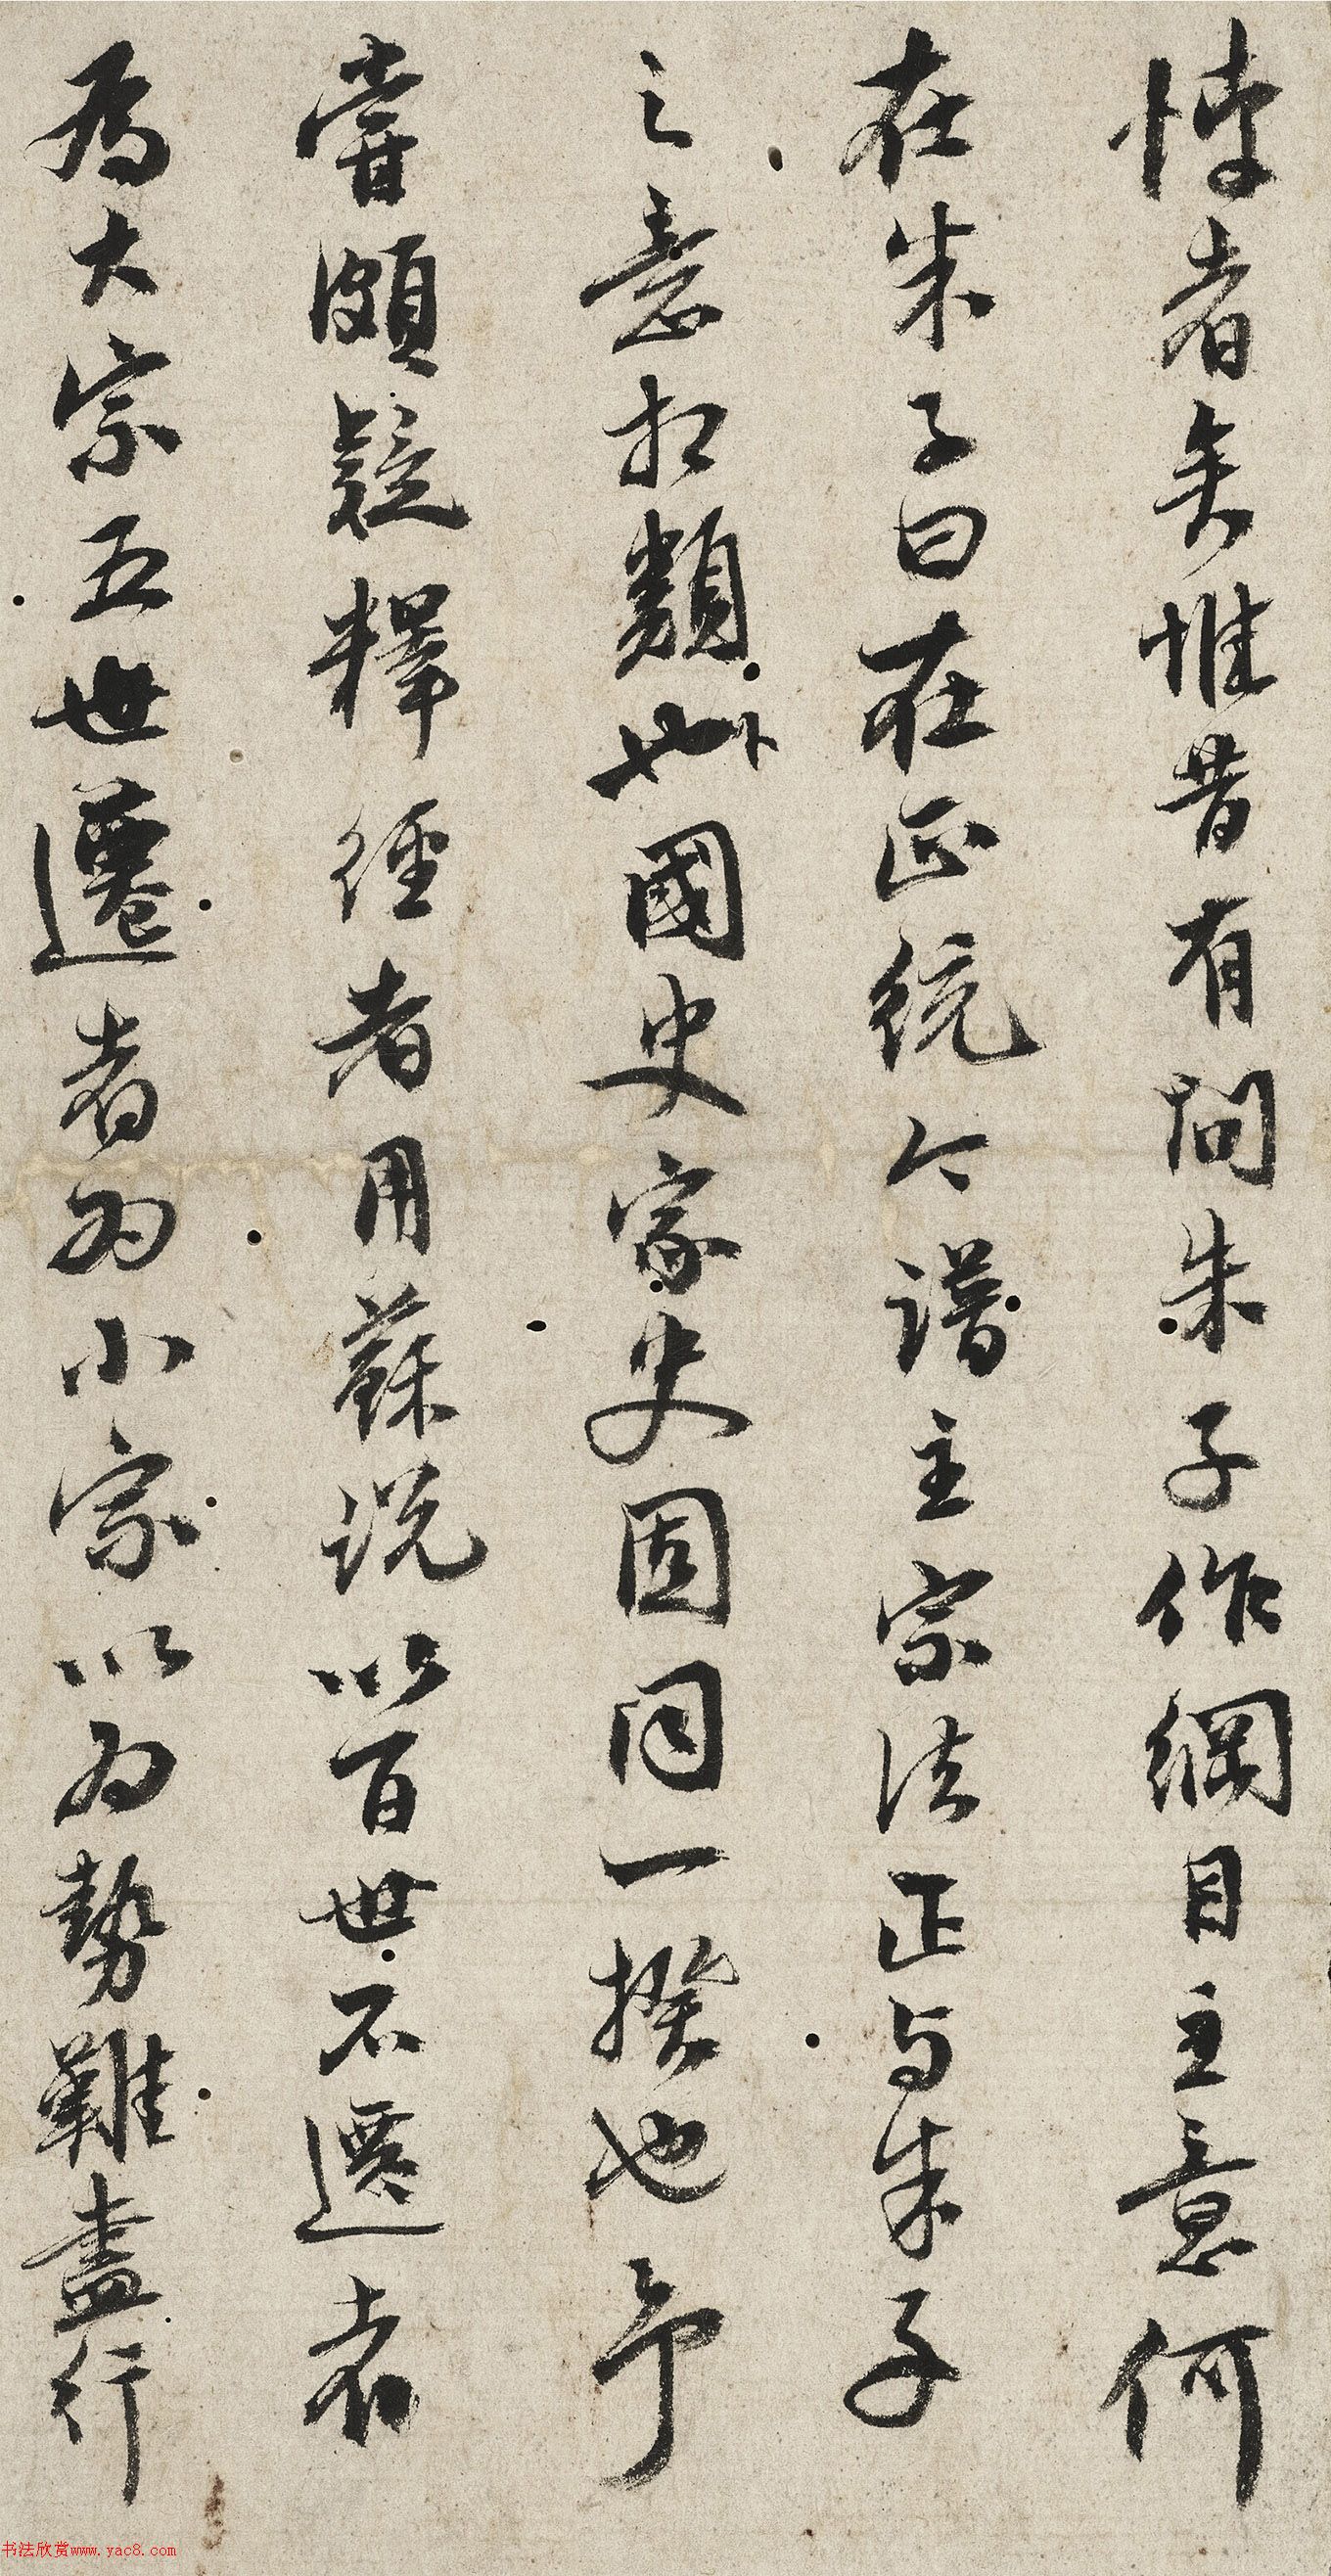 悖者矣惟昔有問朱子作綱目主意何
在朱子曰在正統今譜主宗法正与朱子
之意相類也國史家史固同一揆也予
嘗頗疑釋經者用蘇説以百世不遷者
為大宗五世遷者為小宗以為勢難盡行
书法欣赏www.yac8.com